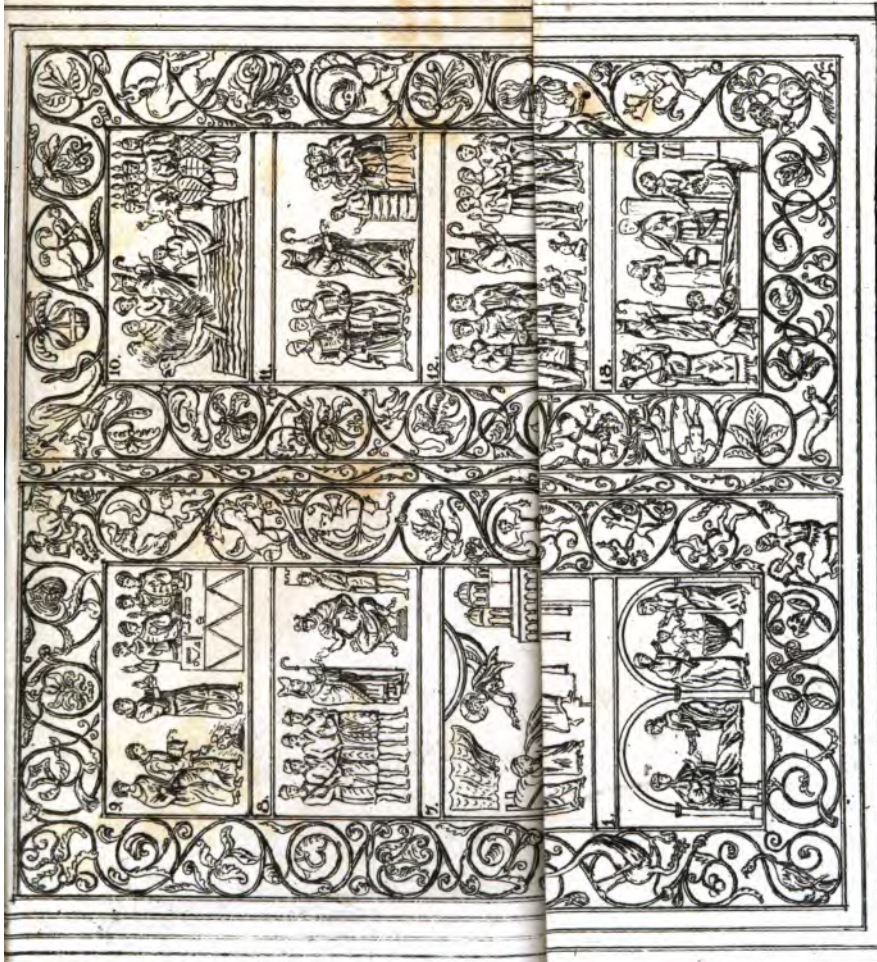 10.
11.
12.
13.
9.
8.
7.
1.